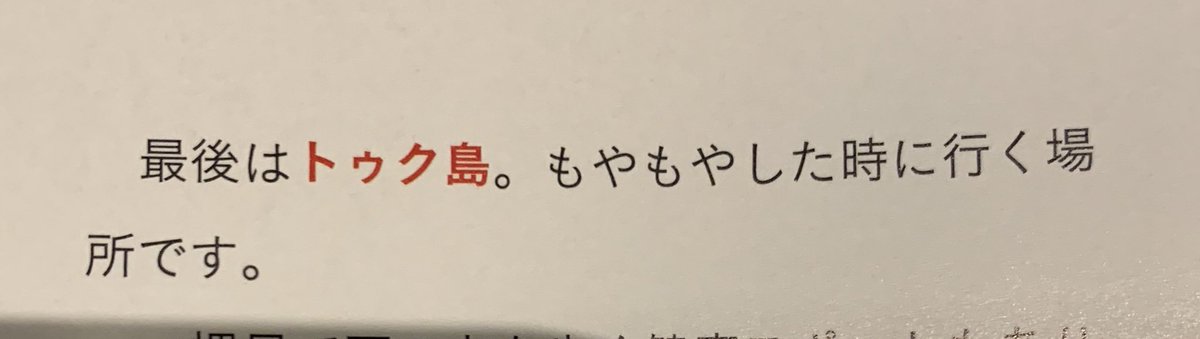 最後はトゥク島。もやもやした時に行く場
所です。